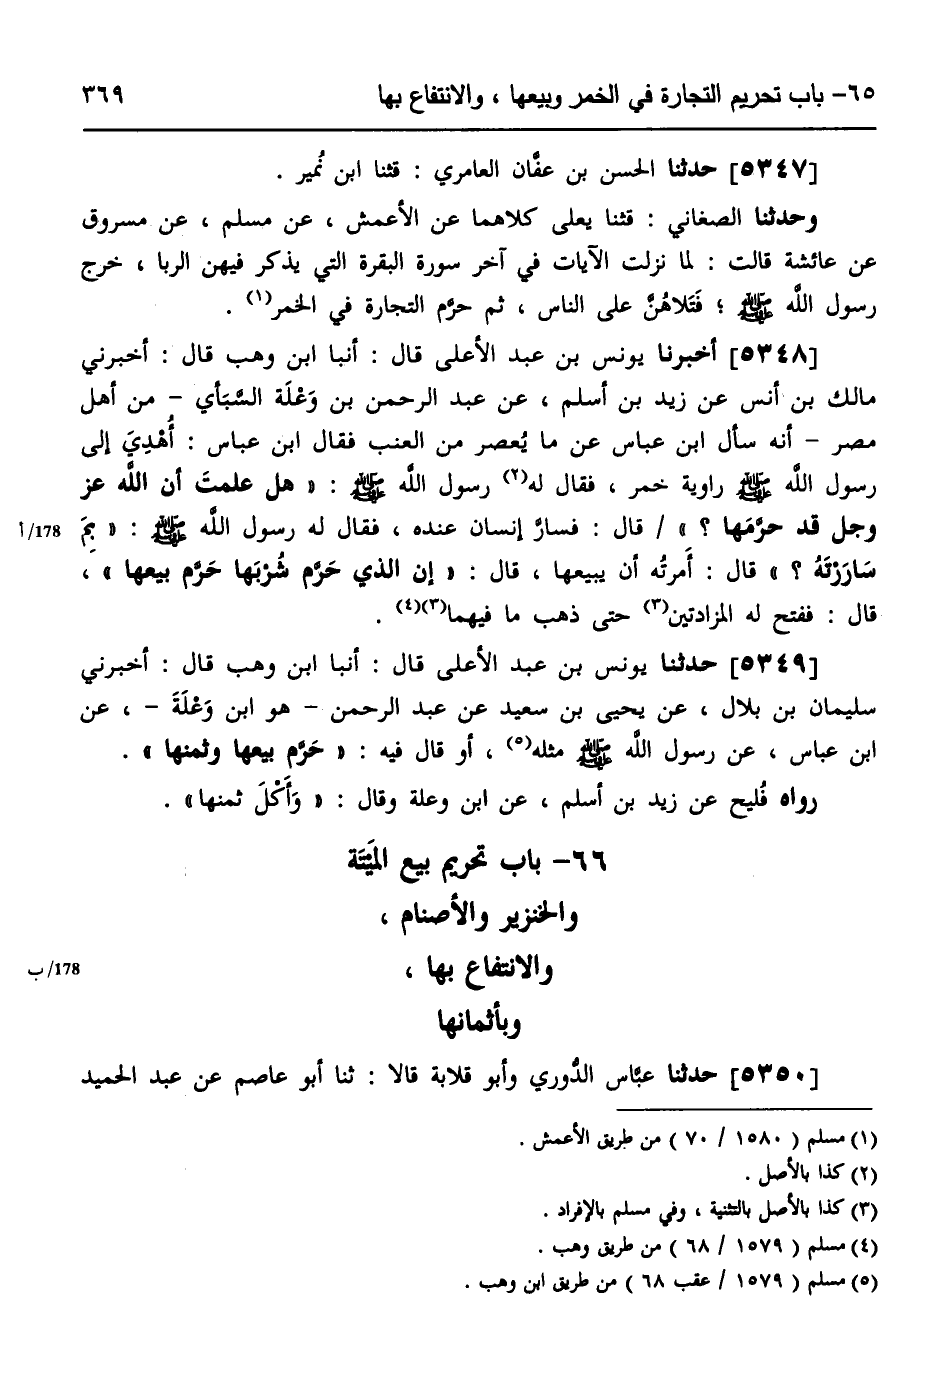 ٦٥- باب تحريم التجارة في الخمر وبيعها ، والانتفاع بها ٣٦٩
[٥٣٤٧] حدثنا الحسن بن عفَّان العامري : قثنا ابن نُمير .
وحدثنا الصغاني : قثنا يعلى كلاهما عن الأعمش ، عن مسلم ، عن مسروق
عن عائشة قالت : لما نزلت الآيات في آخر سورة البقرة التي يذكر فيهن الربا ، خرج
رسول اللَّه ﷺ ؛ فَتَلاهُنَّ على الناس ، ثم حرَّم التجارة في الخمر(١) .
[٥٣٤٨] أخبرنا يونس بن عبد الأعلى قال : أنبا ابن وهب قال : أخبرني
مالك بن أنس عن زيد بن أسلم ، عن عبد الرحمن بن وَعْلَة السَّبَأي - من أهل
مصر - أنه سأل ابن عباس عن ما يُعصر من العنب فقال ابن عباس : أُهْدِيَ إلى
رسول اللَّه ﷺ راوية خمر ، فقال له(٢) رسول اللَّه ﷺ : « هل علمتَ أن اللَّه عز
وجل قد حرَّمَها ؟ » / قال : فسارَّ إنسان عنده ، فقال له رسول اللَّه ﷺ : « بِمَ 178/أ
سَارَرْتَهُ ؟ » قال : أَمرتُه أن يبيعها ، قال : « إن الذي حَرَّم شُرْبَها حَرَّم بيعها » ،
قال : ففتح له المزادتين(٣) حتى ذهب ما فيهما(٣)(٤) .
[٥٣٤٩] حدثنا يونس بن عبد الأعلى قال : أنبا ابن وهب قال : أخبرني
سليمان بن بلال ، عن يحيى بن سعيد عن عبد الرحمن - هو ابن وَعْلَةَ - ، عن
ابن عباس ، عن رسول اللَّه ﷺ مثله(٥) ، أو قال فيه : « حَرَّم بيعها وثمنها » .
رواه فُليح عن زيد بن أسلم ، عن ابن وعلة وقال : « وَأَكْلَ ثمنها» .
٦٦- باب تحريم بيع المَيْتَة
والخنزير والأصنام ،
والانتفاع بها ، 178/ب
وبأثمانها
[٥٣٥٠] حدثنا عبَّاس الدُّوري وأبو قلابة قالا : ثنا أبو عاصم عن عبد الحميد
(١) مسلم ( ١٥٨٠ / ٧٠ ) من طريق الأعمش .
(٢) كذا بالأصل .
(٣) كذا بالأصل بالتثنية ، وفي مسلم بالإفراد .
(٤) مسلم ( ١٥٧٩ / ٦٨ ) من طريق وهب .
(٥) مسلم ( ١٥٧٩ / عقب ٦٨ ) من طريق ابن وهب .